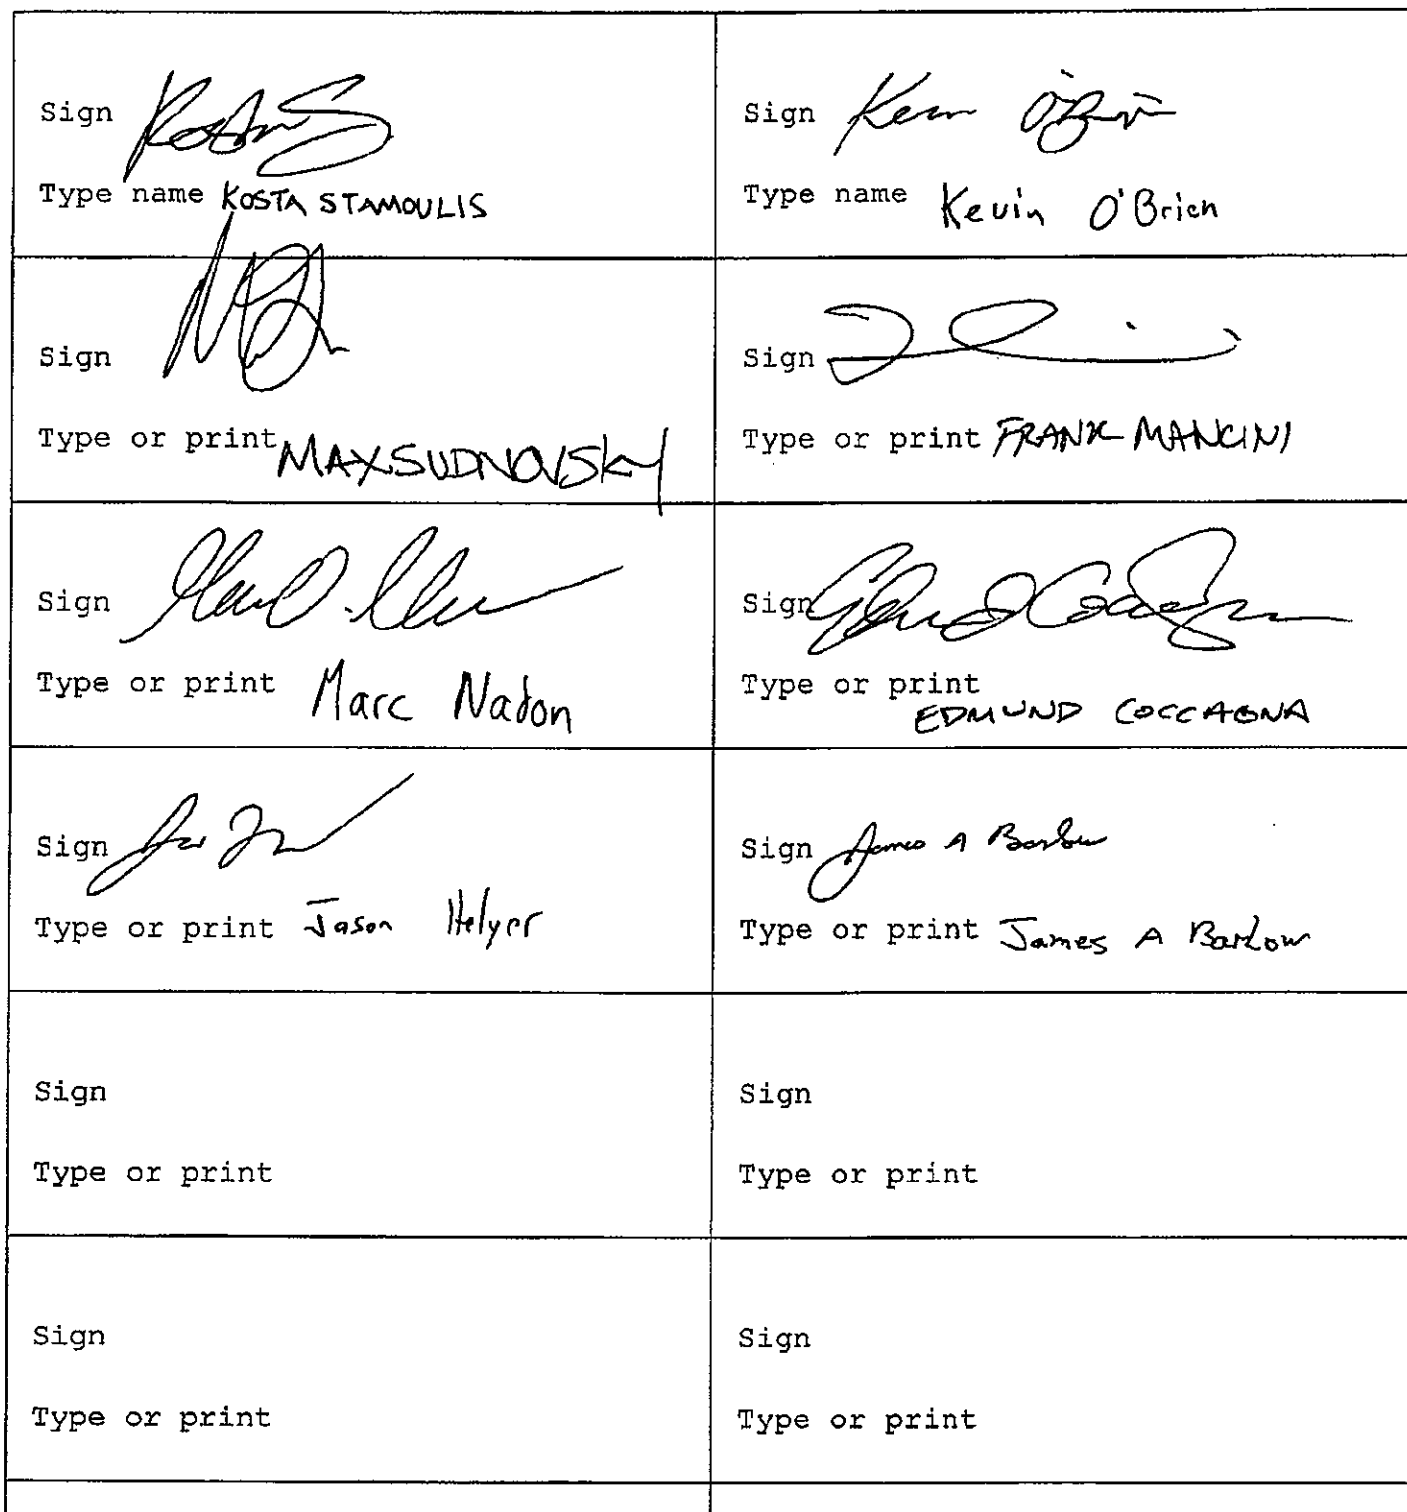 Sign
Type name KOSTA STAMOULIS
Sign Kevin O'Brien
Type name Kevin O'Brien
Sign
Type or print MAX SUDNOVSKY
Sign
Type or print FRANK MANCINI
Sign
Type or print Marc Nadon
Sign
Type or print EDMUND COCCAGNA
Sign
Type or print Jason Helyer
Sign James A Barlow
Type or print James A Barlow
Sign
Type or print
Sign
Type or print
Sign
Type or print
Sign
Type or print